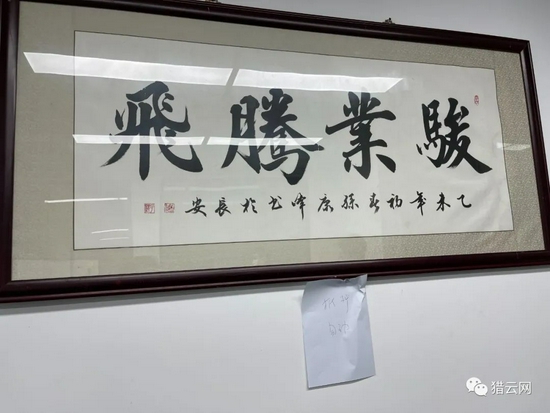 駿業騰飛
乙未年初春孫康峰书於長安
猎云网